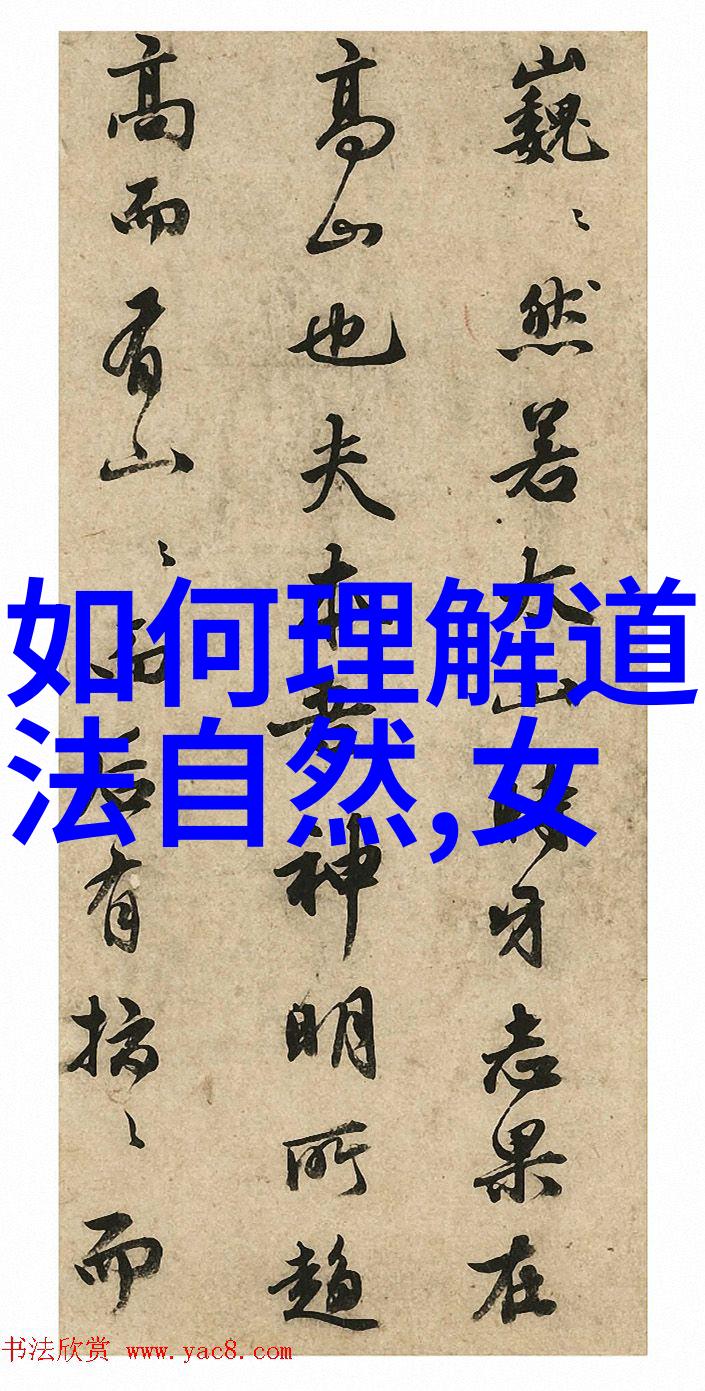 巍〻然若大山牙志果在
高山也夫本神明所趨
高而有山〻后有〻而
如何理解道
法自然,女
书法欣赏 www.yac8.com